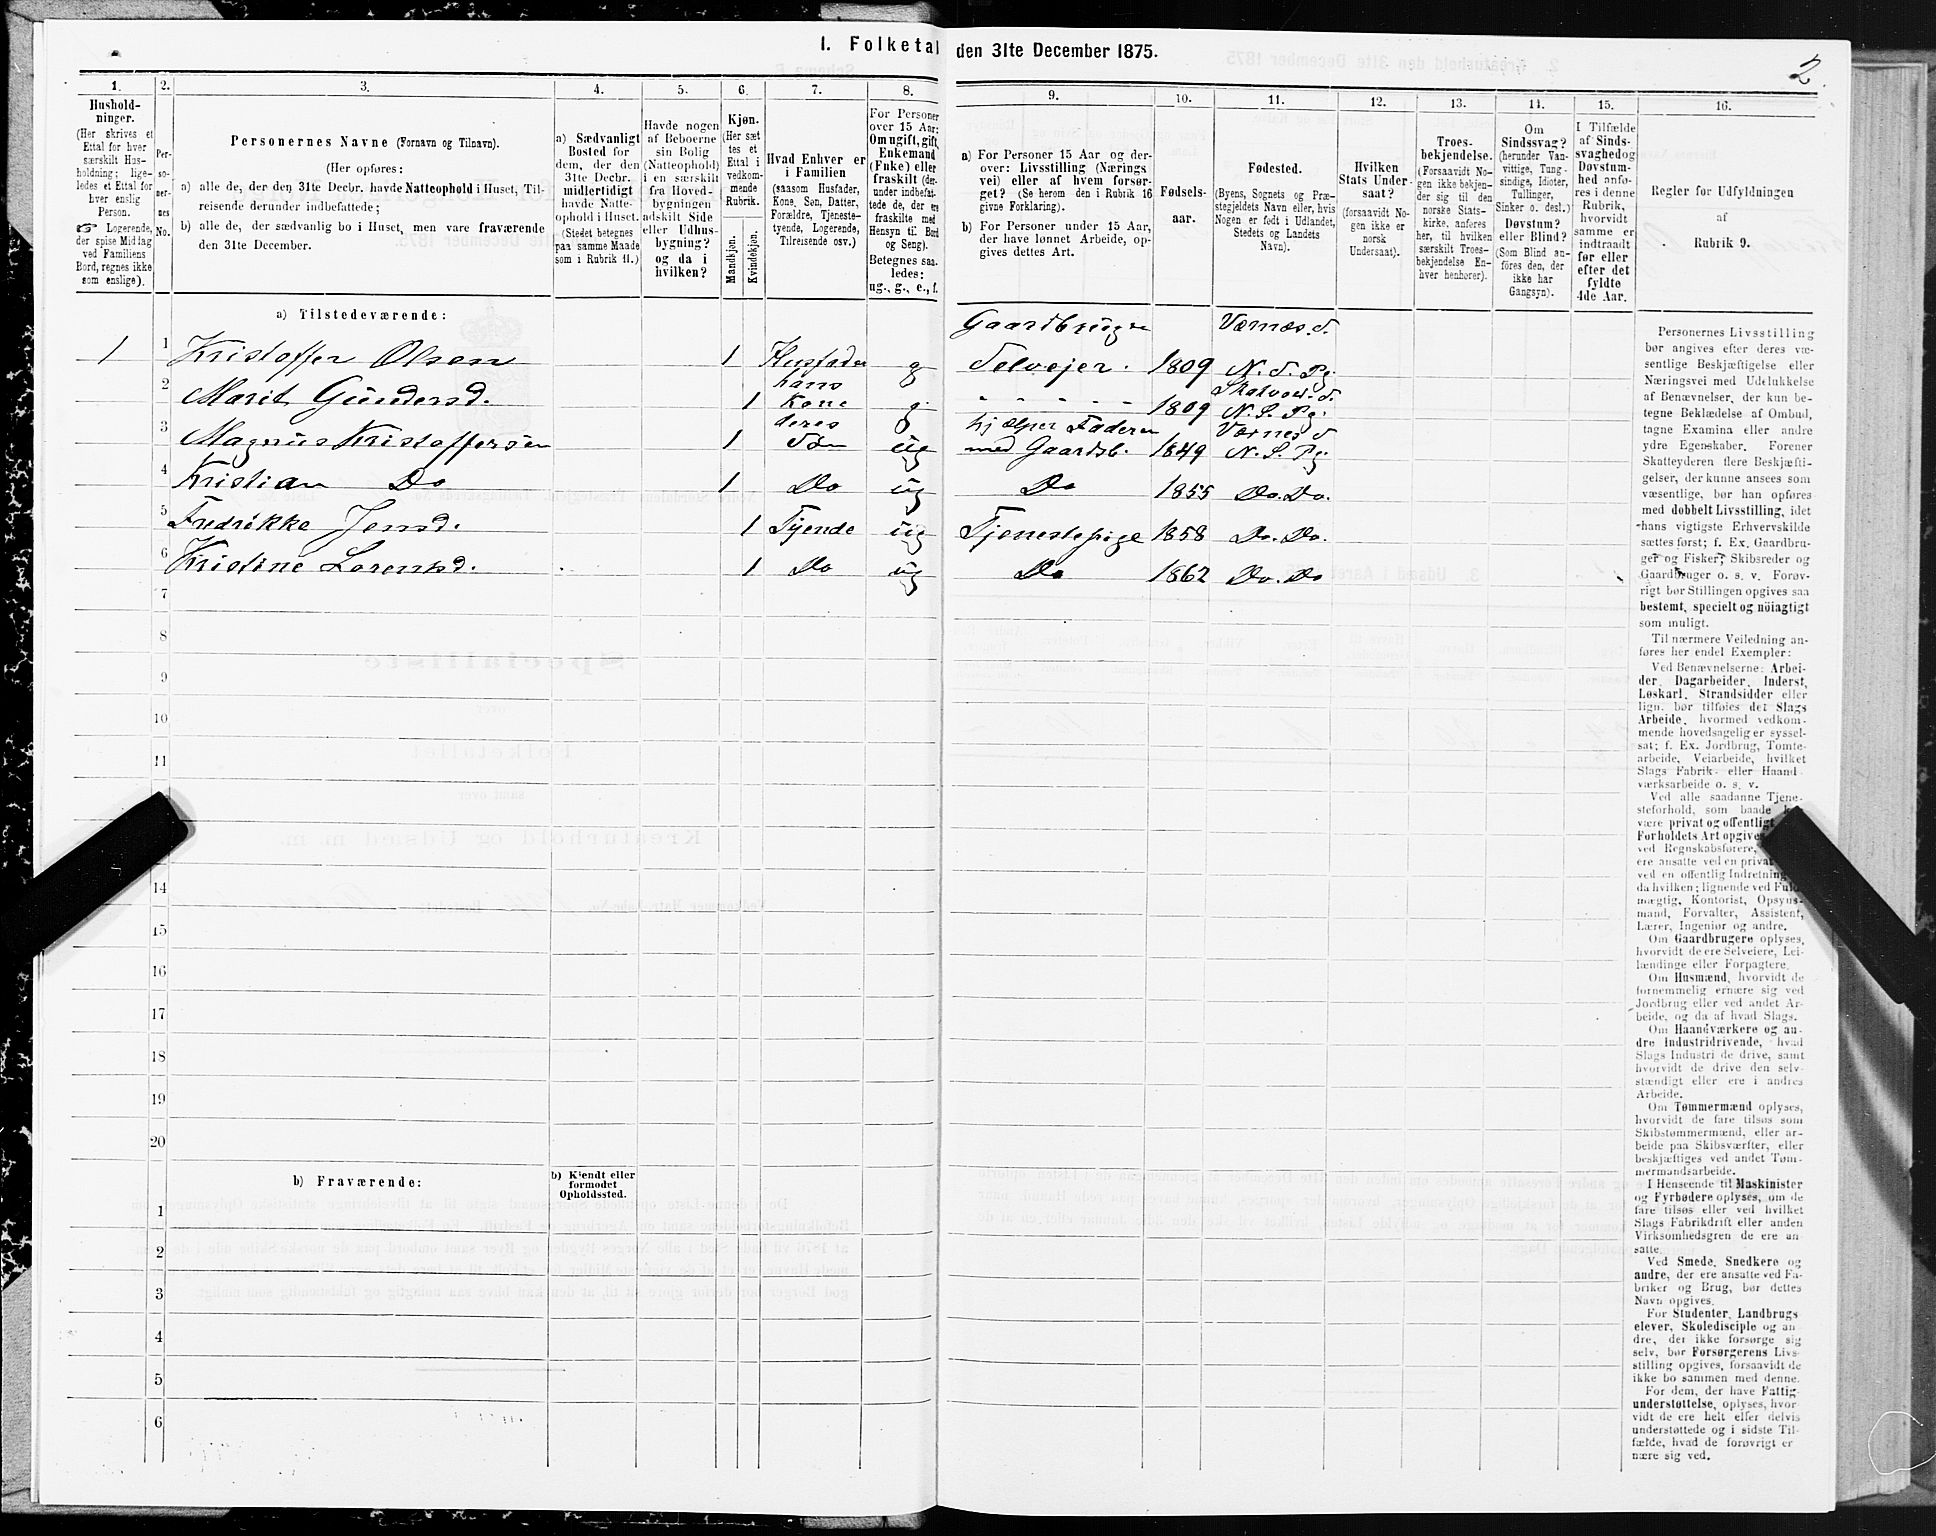 1. Folketal den 31te December 1875.
2.
1.
Hushold-
ninger.
(Her skrives et
Ettal for hver
særskilt Hus-
holdning; lige-
ledes et Ettal for
hver enslig
Person.
☞ Logerende,
der spise Middag
ved Familiens
Bord, regnes ikke
som enslige).
2.
Per-
so-
ner-
nes
No.
3.
Personernes Navne (Fornavn og Tilnavn).
(Her opføres:
a) alle de, der den 31te Decbr. havde Natteophold i Huset, Til-
reisende derunder indbefattede;
b) alle de, der sædvanlig bo i Huset, men vare fraværende
den 31te December.
4.
a) Sædvanligt
Bosted for
dem, der den
31te Decbr.
midlertidigt
havde Natte-
ophold i Huset.
(Stedet betegnes
paa samme Maade
som i Rubrik 11.)
5.
Havde nogen
af Beboerne
sin Bolig
(Natteophold)
i en særskilt
fra Hoved-
bygningen
adskilt Side
eller Udhus-
bygning?
og da i
hvilken?
6.
Kjøn.
(Her sæt-
tes et
Ettal i
vedkom-
mende
Rubrik.
Mandkjøn.
Kvindekjøn.
7.
Hvad Enhver er
i Familien
(saasom Husfader,
Kone, Søn, Datter,
Forældre, Tjeneste-
tyende, Logerende,
Tilreisende osv.)
8.
For Personer
over 15 Aar:
Om ugift, gift,
Enkemand
(Enke) eller
fraskilt (der-
under indbefat-
tede de, der ere
fraskilte med
Hensyn til Bord
og Seng).
Betegnes saa-
ledes:
ug., g., e., f.
9.
a) For Personer 15 Aar og der-
over: Livsstilling (Nærings
vei) eller af hvem forsør-
get? (Se herom den i Rubrik 16
givne Forklaring).
b) For Personer under 15 Aar,
der have lønnet Arbeide, op-
gives dettes Art.
10.
Fødsels-
aar.
11.
Fødested.
(Byens, Sognets og Præ-
stegjeldets Navn eller, hvis
Nogen er født i Udlandet,
Stedets og Landets
Navn).
12.
Hvilken
Stats Under-
saat?
(forsaavidt No-
gen ikke er
norsk
Undersaat).
13.
Troes-
bekjendelse.
(Forsaavidt No-
gen ikke bekjen-
der sig til den
norske Stats-
kirke, anføres
her, til hvilken
særskilt Troes-
bekjendelse En-
hver henhører).
14.
Om
Sindssvag?
(herunder Van-
vittige, Tung-
sindige, Idioter,
Tullinger,
Sinker o. desl.)
Døvstum?
eller Blind?
(Som Blind an-
föres den, der
ikke har
Gangsyn).
15.
I Tilfælde
af Sinds-
svaghed og
Døvstum-
hed anfø-
res i denne
Rubrik,
hvorvidt
samme er
indtraadt
før eller
efter det
fyldte
4de Aar.
16.
Regler for Udfyldningen
af
Rubrik 9.
a) Tilstedeværende:
1 1 Kristoffer Olsen 1 Husfader g Gaardbruger Selvejer. 1809 Værnes. S. N. S. Pg.
2 Marit Gundersd. 1 hans Kone g. " " " " " 1809 Skatval. S. N. S. Pg.
3 Magnus Kristoffersen 1 deres Søn ug hjælper Faderen med Gaardsb. 1849 Værnes S N. S. Pg
4 Kristian Do 1 Do ug Do 1855 Do. Do.
5 Fredrikke Jensd. 1 Tyende ug Tjenestepige 1858 Do. Do.
6 Kristine Lorentsd. 1 Do ug Do 1862 Do. Do
7
8
9
10
11
14
15
16
17
18
19
20
b) Fraværende:
b) Kjendt eller
formodet
Opholdssted.
1
2
3
4
5
6
Personernes Livsstilling
bør angives efter deres væ-
sentlige Beskjæftigelse eller
Næringsvei med Udelukkelse
af Benævnelser, der kun be-
tegne Beklædelse af Ombud,
tagne Examina eller andre
ydre Egenskaber. Forener
Skatteyderen flere Beskjæfti-
gelser, der kunne ansees som
væsentlige, bør han opføres
med dobbelt Livsstilling, idet
hans vigtigste Erhvervskilde
sættes først; f. Ex. Gaardbru-
ger og Fisker; Skibsreder og
Gaardbruger o. s. v. Forøv-
rigt bør Stillingen opgives saa
bestemt, specielt og nöiagtigt
som muligt.
Til nærmere Veiledning an-
føres her endel Exempler:
Ved Benævnelserne: Arbei-
der, Dagarbeider, Inderst,
Løskarl, Strandsidder eller
lign. bør tilføies det Slags
Arbeide, hvormed vedkom-
mende hovedsagelig er syssel-
sat; f. Ex. Jordbrug, Tomte-
arbeide, Veiarbeide, hvilket
Slags Fabrik- eller Haand-
værksarbeide o. s. v.
Ved alle saadanne Tjene-
steforhold, som baade
være privat og offentligt,
Forholdets Art opgives,
ved Regnskabsførere,
ere ansatte ved en privat
ved en offentlig Indretning
da hvilken; lignende ved Fuld-
mægtig, Kontorist, Opsyns-
mand, Forvalter, Assistent,
Lærer, Ingeniør og andre.
Om Gaardbrugere oplyses,
hvorvidt de ere Selveiere, Lei-
lændinge eller Forpagtere.
Om Husmænd, hvorvidt de
fornemmelig ernære sig ved
Jordbrug eller ved andet Ar-
beide, og da af hvad Slags.
Om Haandværkere og an-
dre Industridrivende, hvad
Slags Industri de drive, samt
hvorvidt de drive den selv-
stændigt eller ere i andres
Arbeide.
Om Tømmermænd oplyses,
hvorvidt de fare tilsøs som
Skibstømmermænd, eller ar-
beide paa Skibsværfter, eller
beskjæftiges ved andet Tøm-
mermandsarbeide.
I Henseende til Maskinister
og Fyrbødere oplyses, om de
fare tilsøs eller ved hvilket
Slags Fabrikdrift eller anden
Virksomhedsgren de ere an-
satte.
Ved Smede, Snedkere og
andre, der ere ansatte ved Fa-
briker og Brug, bør dettes
Navn opgives.
For Studenter, Landbrugs-
elever, Skoledisciple og an-
dre, der ikke forsørge sig
selv, bør Forsørgerens Livs-
stilling opgives, forsaavidt de
ikke bo sammen med denne.
For dem, der have Fattig-
understøttelse, oplyses, hvor-
vidt de ere helt eller delvis
understøttede og i sidste Til-
fælde, hvad de forøvrigt er-
nære sig ved.